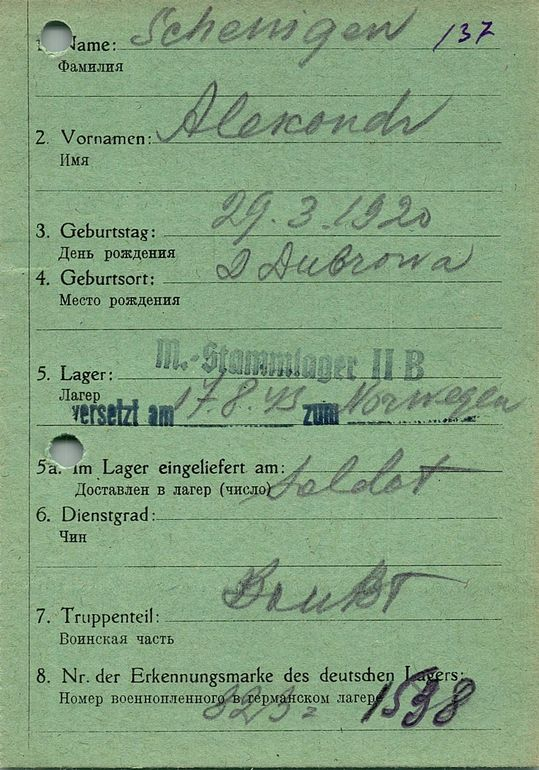 1. Name: Schenigen 137
Фамилия
2. Vornamen: Alexandr
Имя
3. Geburtstag: 29.3.1920
День рождения
4. Geburtsort: D Dubrowa
Место рождения
M.-Stammlager II B
5. Lager:
Лагер
versetzt am 17.8.43 zum Norwegen
5a. Im Lager eingeliefert am:
Доставлен в лагер (число) Soldat
6. Dienstgrad:
Чин
7. Truppenteil:
Воинская часть
8. Nr. der Erkennungsmarke des deutschen Lagers:
Номер военнопленного в германском лагере